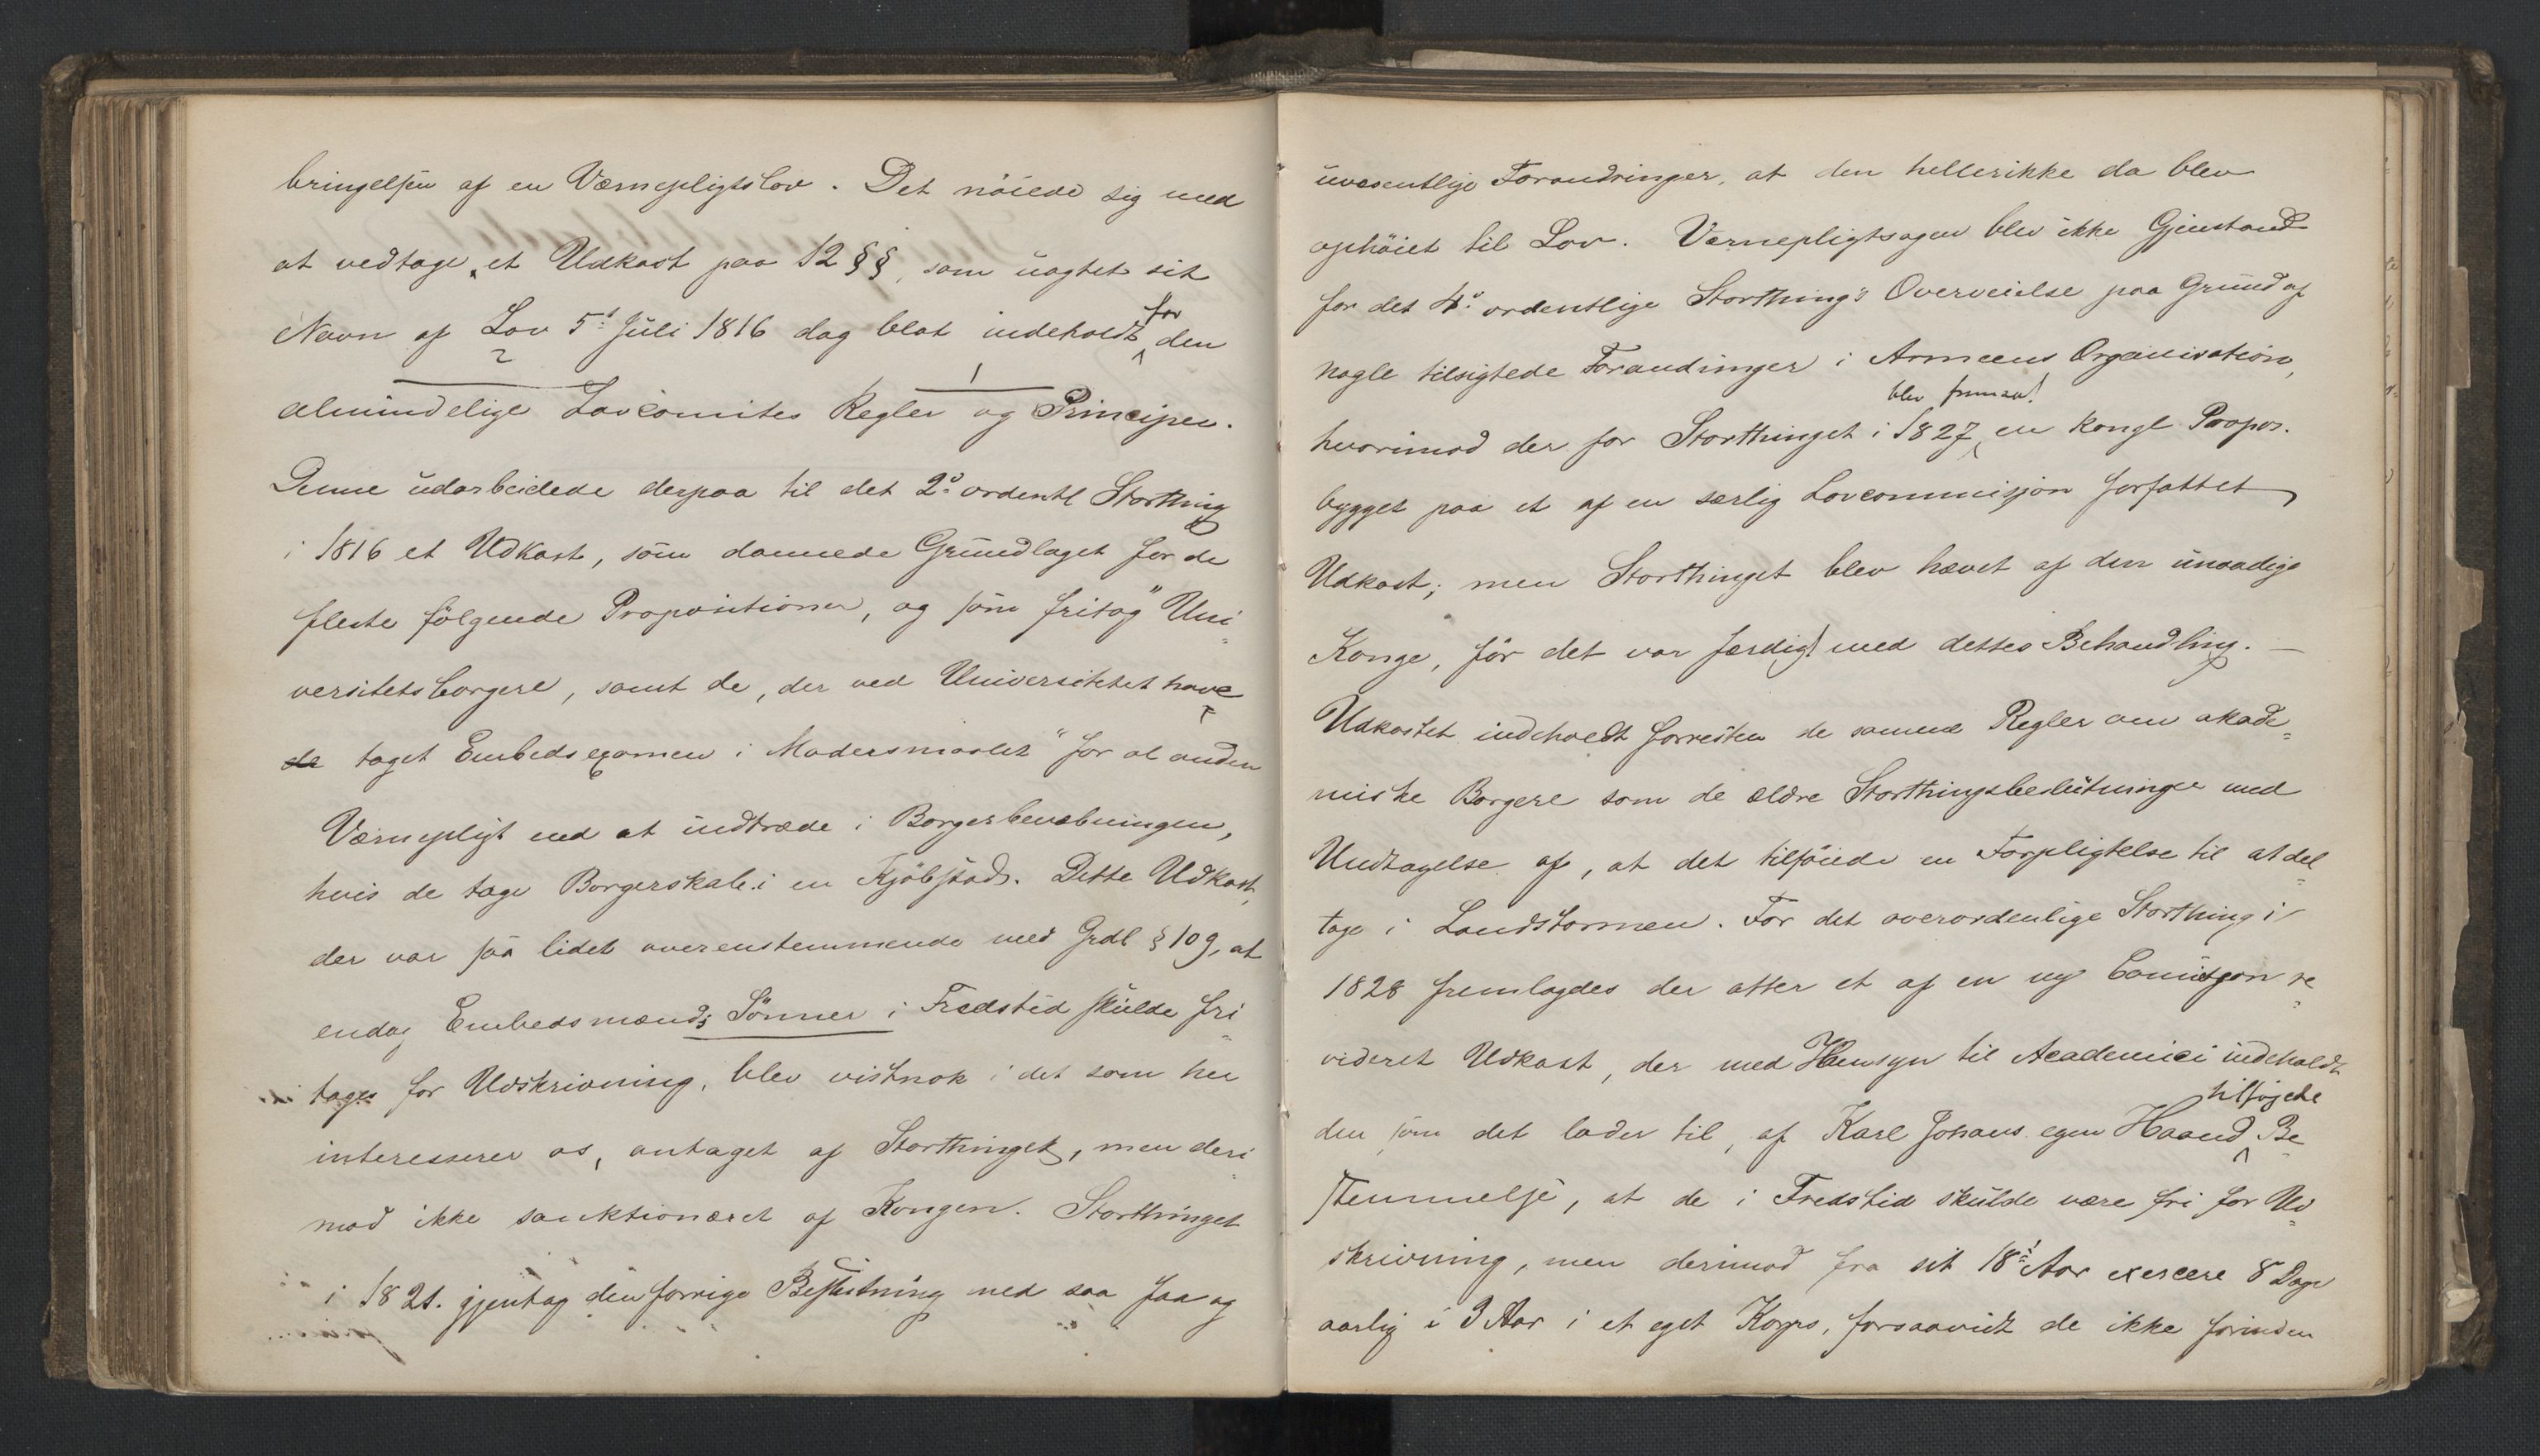 bringelsen af en Værnepligtslov. Det nöiede sig med
at vedtage et Udkast paa 12 §§, som uagtet sit
for
Navn af Lov 5te Juli 1816 dog blot indeholdt den
2 1
almindelige Lovcomites Regler og Principer.
Denne udarbeidede derpaa til det 2° ordentl Storthing
i 1816 et Udkast, som dannede Grundlaget for de
fleste fölgende Propositioner, og som fritog "Uni
versitetsborgere, samt de, der ved Universitetet have
de taget Embedsexamen i Modersmaalet" for al anden
Værnepligt end at indtræde i Borgerbevæbningen,
hvis de tage Borgerskab i en Kjöbstad. Dette Udkast,
der var saa lidet overenstemmende med Grdl § 109, at
endog Embedsmænds Sönner i Fredstid skulde fri
tages for Udskrivning, blev vistnok i det som her
interesserer os, antaget af Storthinget, men deri
mod ikke sanktioneret af Kongen. Storthinget
i 1821. gjentog den forrige Beslutning med saa faa og
uvæsentlige Forandringer, at den hellerikke da blev
ophöiet til Lov. Værnepligtsagen blev ikke Gjenstand
for det 4° ordentlige Storthing's Overveielse paa Grund af
nogle tilsigtede Forandringer i Armeens Organisation,
blev fremsat
hvorimod der for Storthinget i 1827 en kongl Propos.
bygget paa et af en særlig Lovcommisjon forfattet
Udkast; men Storthinget blev hævet af den unaadige
Konge, för det var færdigt med dettes Behandling. —
Udkastet indeholdt forresten de samme Regler om akade
miske Borgere som de ældre Storthingsbeslutninger med
Undtagelse af, at det tilföiede en Forpligtelse til at del
tage i Landstormen. For det overordenlige Storthing i
1828 fremlagdes der atter et af en ny Comisjon re
videret Udkast, der med Hensyn til Academici indeholdt
tilföjede
den som det lader til, af Karl Johans egen Haand Be
stemmelse, at de i Fredstid skulde være fri for Ud
skrivning, men derimod fra sit 18de Aar exercere 8 Dage
aarlig i 3 Aar i et eget Korps, forsaavidt de ikke forinden